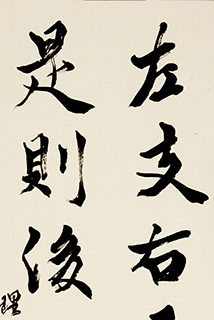 左支右
是則後
理